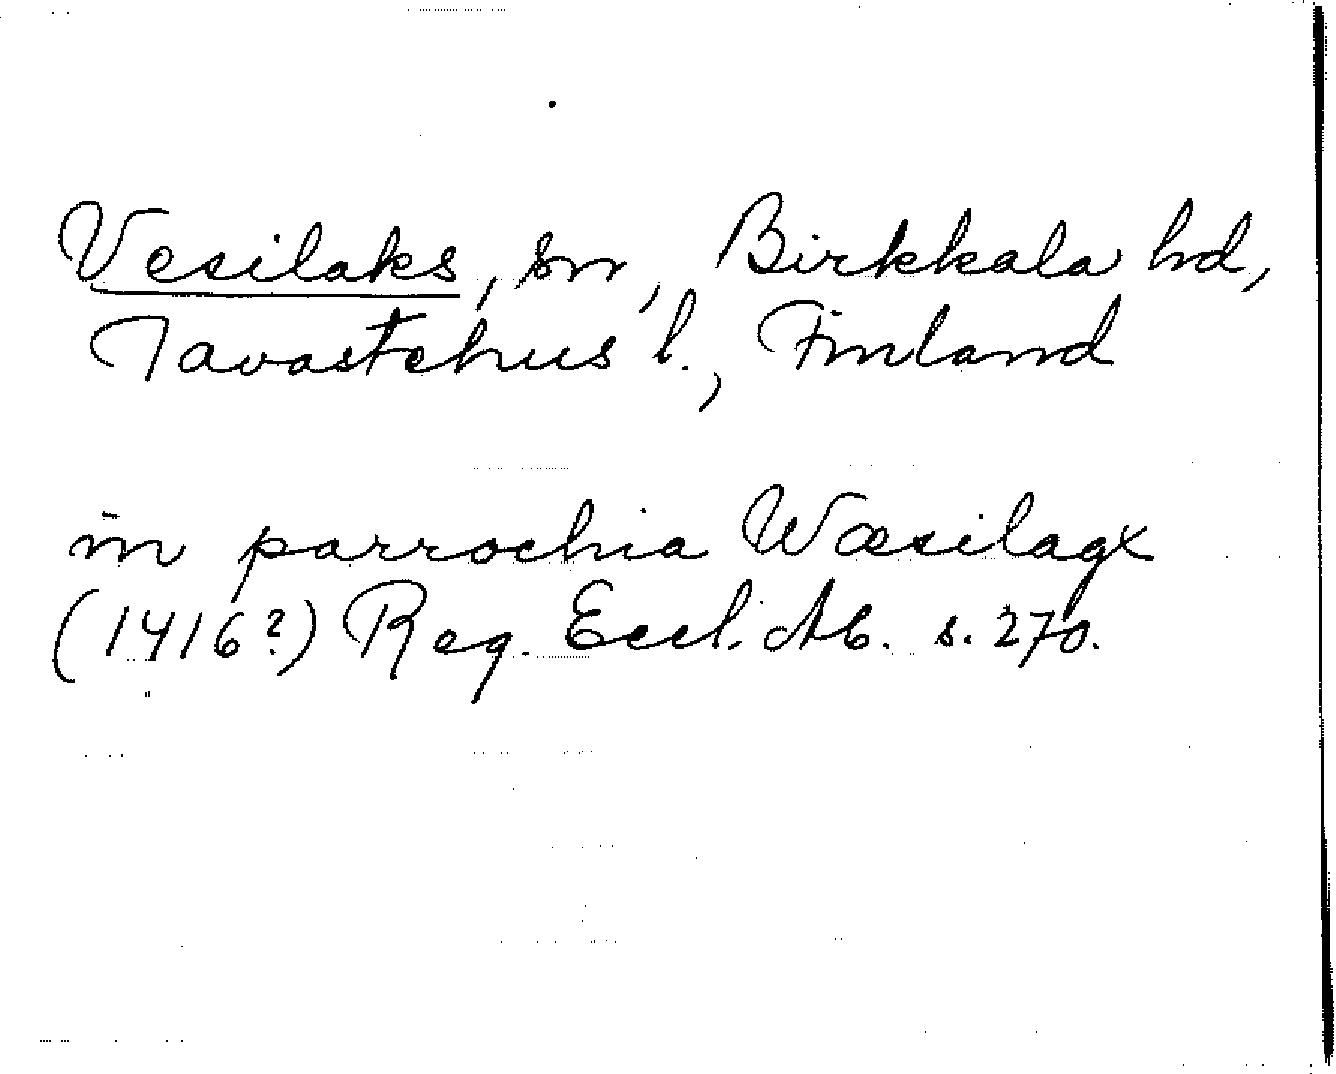 Vesilaks, sn, Birkkala hd,
Tavastehus l., Finland
in parrochia Wæsilagx
(1416?) Reg. Eccl. Ab. s. 270.